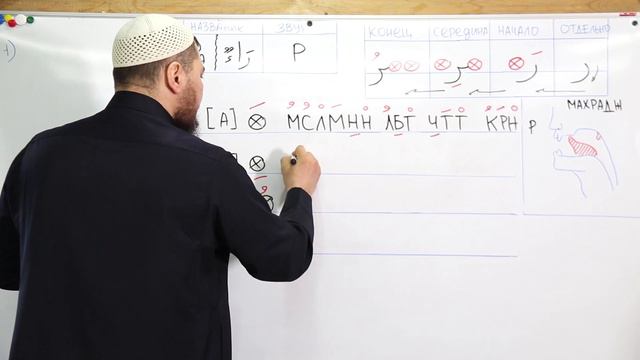 НАЗВАНИЕ ЗВУК КОНЕЦ СЕРЕДИНА НАЧАЛО ОТДЕЛЬНО
Р
[А] МСЛМНН ЛБТ ЧТТ КРН
МАХРАДЖ
Р